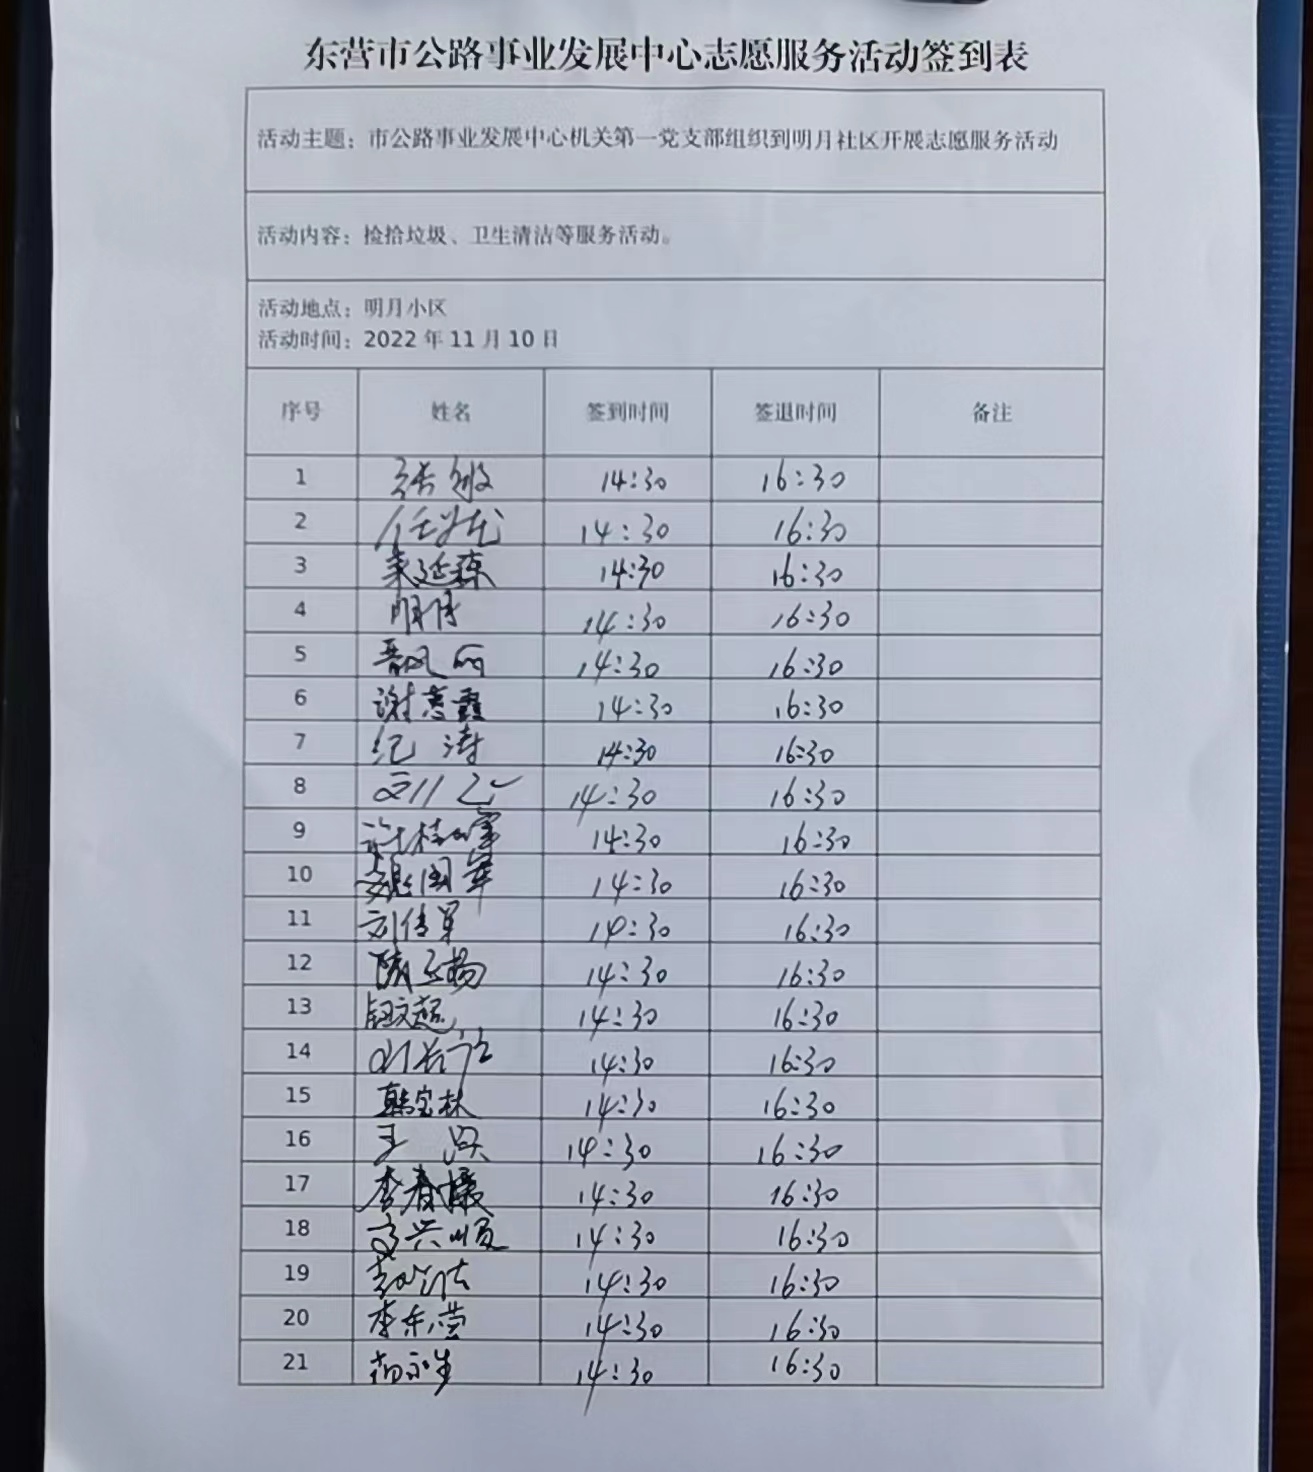 东营市公路事业发展中心志愿服务活动签到表
活动主题：市公路事业发展中心机关第一党支部组织到明月社区开展志愿服务活动
活动内容：捡拾垃圾、卫生清洁等服务活动。
活动地点：明月小区
活动时间：2022 年 11 月 10 日
序号 姓名 签到时间 签退时间 备注
1 张敏 14:30 16:30
2 14:30 16:30
3 14:30 16:30
4 14:30 16:30
5 14:30 16:30
6 谢惠霞 14:30 16:30
7 纪涛 14:30 16:30
8 14:30 16:30
9 14:30 16:30
10 魏国军 14:30 16:30
11 刘传军 14:30 16:30
12 14:30 16:30
13 14:30 16:30
14 14:30 16:30
15 韩宝林 14:30 16:30
16 王 14:30 16:30
17 李春 14:30 16:30
18 高兴顺 14:30 16:30
19 14:30 16:30
20 李东营 14:30 16:30
21 14:30 16:30